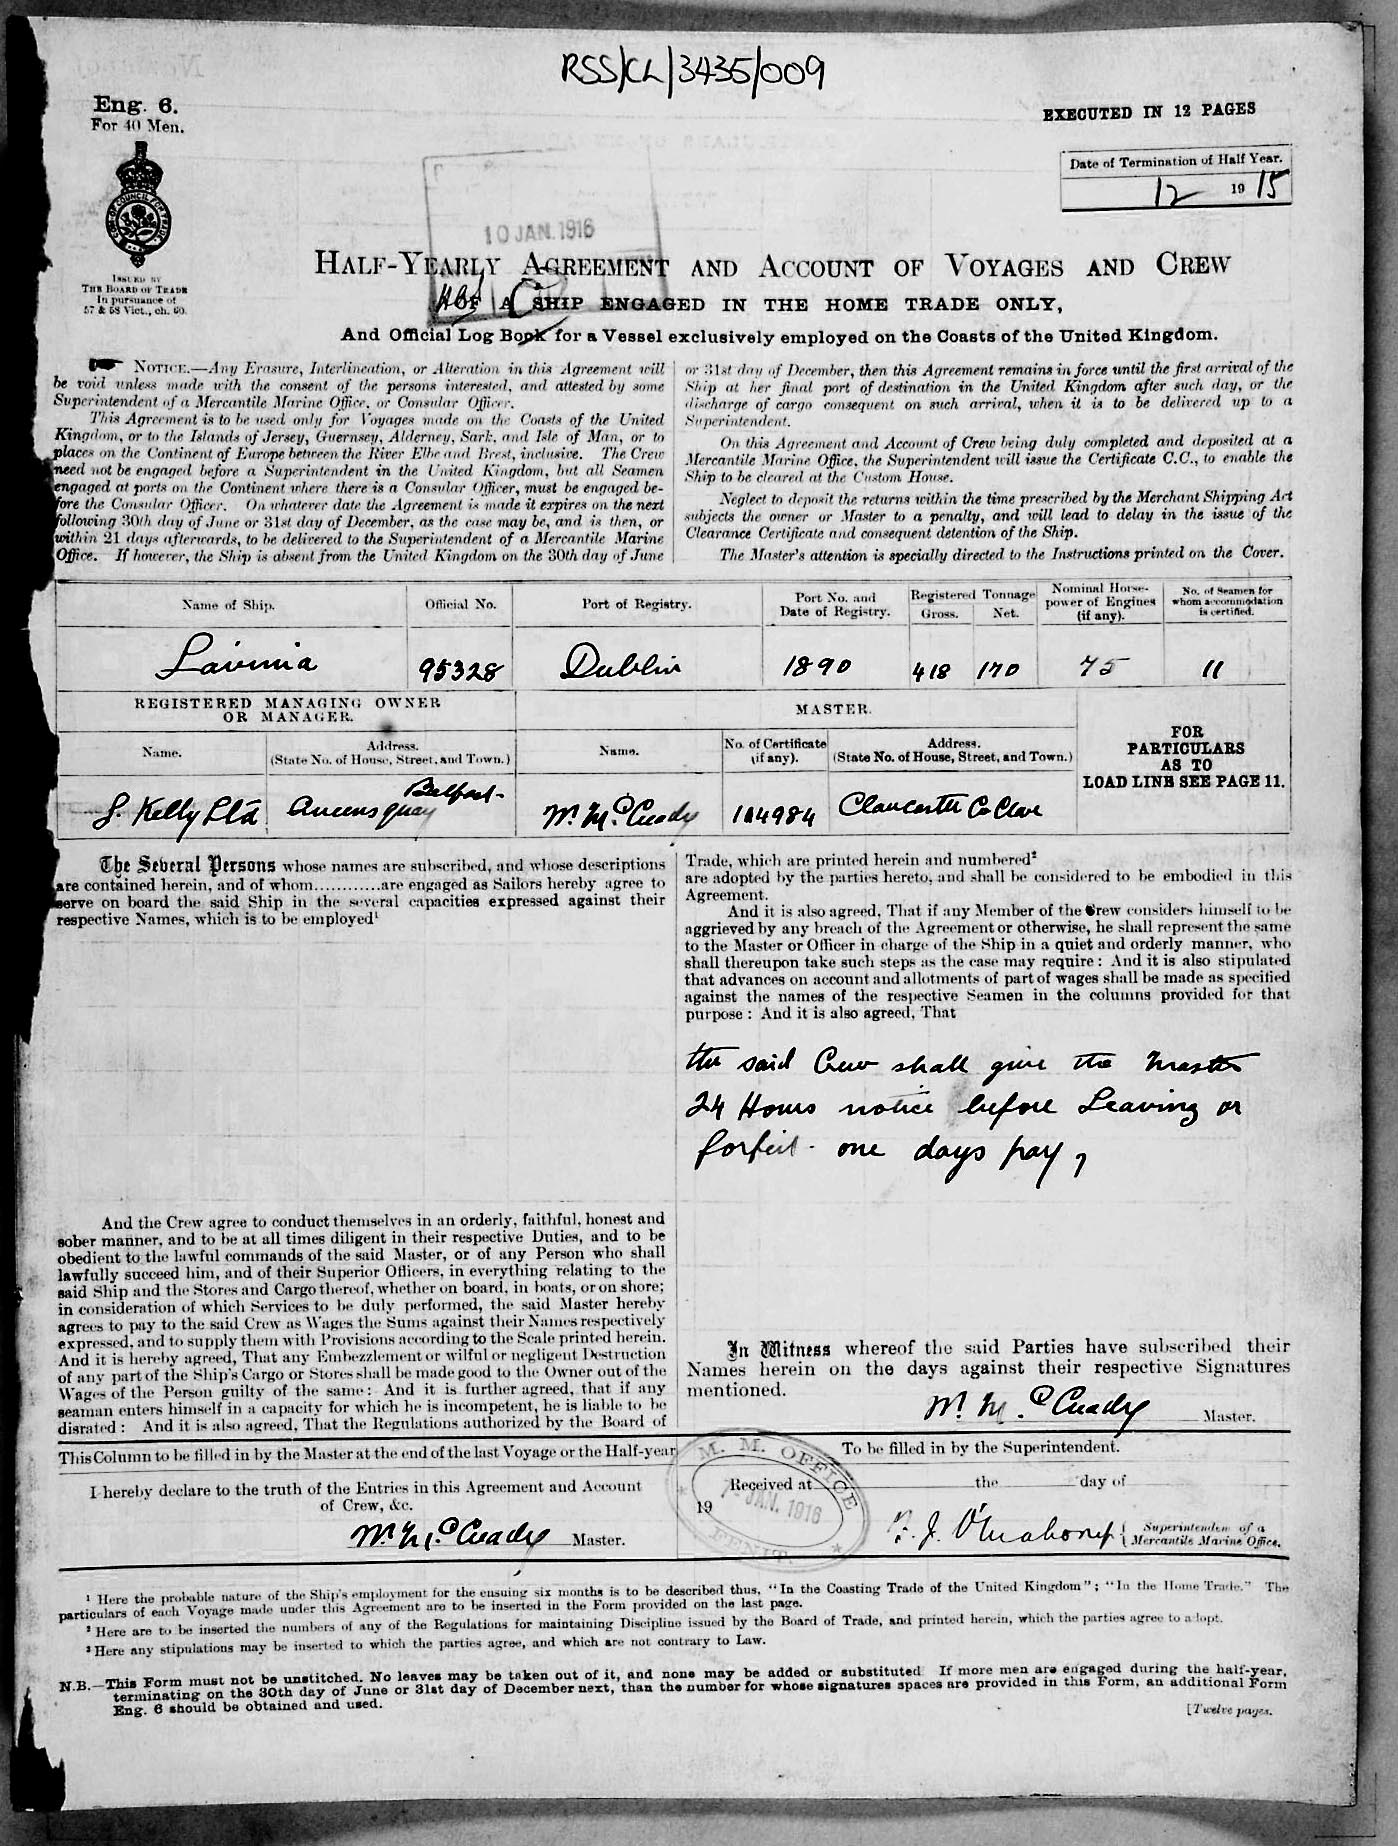 RSS/CL/3435/009
Eng. 6.
For 40 Men.
EXECUTED IN 12 PAGES
Date of Termination of Half Year.
12 1915
ISSUED BY
THE BOARD OF TRADE
In pursuance of
57 & 58 Vict., ch. 60.
10 JAN. 1916
HALF-YEARLY AGREEMENT AND ACCOUNT OF VOYAGES AND CREW
OF A SHIP ENGAGED IN THE HOME TRADE ONLY,
And Official Log Book for a Vessel exclusively employed on the Coasts of the United Kingdom.
NOTICE.—Any Erasure, Interlineation, or Alteration in this Agreement will
be void unless made with the consent of the persons interested, and attested by some
Superintendent of a Mercantile Marine Office, or Consular Officer.
This Agreement is to be used only for Voyages made on the Coasts of the United
Kingdom, or to the Islands of Jersey, Guernsey, Alderney, Sark, and Isle of Man, or to
places on the Continent of Europe between the River Elbe and Brest, inclusive. The Crew
need not be engaged before a Superintendent in the United Kingdom, but all Seamen
engaged at ports on the Continent where there is a Consular Officer, must be engaged be-
fore the Consular Officer. On whatever date the Agreement is made it expires on the next
following 30th day of June or 31st day of December, as the case may be, and is then, or
within 21 days afterwards, to be delivered to the Superintendent of a Mercantile Marine
Office. If however, the Ship is absent from the United Kingdom on the 30th day of June
or 31st day of December, then this Agreement remains in force until the first arrival of the
Ship at her final port of destination in the United Kingdom after such day, or the
discharge of cargo consequent on such arrival, when it is to be delivered up to a
Superintendent.
On this Agreement and Account of Crew being duly completed and deposited at a
Mercantile Marine Office, the Superintendent will issue the Certificate C.C., to enable the
Ship to be cleared at the Custom House.
Neglect to deposit the returns within the time prescribed by the Merchant Shipping Act
subjects the owner or Master to a penalty, and will lead to delay in the issue of the
Clearance Certificate and consequent detention of the Ship.
The Master's attention is specially directed to the Instructions printed on the Cover.
Name of Ship. Official No. Port of Registry. Port No. and Date of Registry. Registered Tonnage Gross. Net. Nominal Horse-power of Engines (if any). No. of Seamen for whom accommodation is certified.
Lavinia 95328 Dublin 1890 418 170 75 11
REGISTERED MANAGING OWNER
OR MANAGER.
MASTER.
Name. Address. (State No. of House, Street, and Town.) Name. No. of Certificate (if any). Address. (State No. of House, Street, and Town.)
FOR
PARTICULARS
AS TO
LOAD LINE SEE PAGE 11.
Belfast
Kelly Ltd Queens quay Wm McCready 104984 Co Clare
The Several Persons whose names are subscribed, and whose descriptions
are contained herein, and of whom............are engaged as Sailors hereby agree to
serve on board the said Ship in the several capacities expressed against their
respective Names, which is to be employed¹
And the Crew agree to conduct themselves in an orderly, faithful, honest and
sober manner, and to be at all times diligent in their respective Duties, and to be
obedient to the lawful commands of the said Master, or of any Person who shall
lawfully succeed him, and of their Superior Officers, in everything relating to the
said Ship and the Stores and Cargo thereof, whether on board, in boats, or on shore;
in consideration of which Services to be duly performed, the said Master hereby
agrees to pay to the said Crew as Wages the Sums against their Names respectively
expressed, and to supply them with Provisions according to the Scale printed herein.
And it is hereby agreed, That any Embezzlement or wilful or negligent Destruction
of any part of the Ship's Cargo or Stores shall be made good to the Owner out of the
Wages of the Person guilty of the same: And it is further agreed, that if any
seaman enters himself in a capacity for which he is incompetent, he is liable to be
disrated: And it is also agreed, That the Regulations authorized by the Board of
Trade, which are printed herein and numbered²
are adopted by the parties hereto, and shall be considered to be embodied in this
Agreement.
And it is also agreed, That if any Member of the Crew considers himself to be
aggrieved by any breach of the Agreement or otherwise, he shall represent the same
to the Master or Officer in charge of the Ship in a quiet and orderly manner, who
shall thereupon take such steps as the case may require: And it is also stipulated
that advances on account and allotments of part of wages shall be made as specified
against the names of the respective Seamen in the columns provided for that
purpose: And it is also agreed, That
the said Crew shall give the Master
24 Hours notice before Leaving or
forfeit one days pay,
In Witness whereof the said Parties have subscribed their
Names herein on the days against their respective Signatures
mentioned.
Wm McCready Master.
This Column to be filled in by the Master at the end of the last Voyage or the Half-year
I hereby declare to the truth of the Entries in this Agreement and Account
of Crew, &c.
Wm McCready Master.
To be filled in by the Superintendent.
Received at the day of
19
M. M. OFFICE
7- JAN. 1916
FENIT.
J. O'Mahony Superintendent of a
Mercantile Marine Office.
¹ Here the probable nature of the Ship's employment for the ensuing six months is to be described thus, "In the Coasting Trade of the United Kingdom"; "In the Home Trade." The
particulars of each Voyage made under this Agreement are to be inserted in the Form provided on the last page.
² Here are to be inserted the numbers of any of the Regulations for maintaining Discipline issued by the Board of Trade, and printed herein, which the parties agree to adopt.
³ Here any stipulations may be inserted to which the parties agree, and which are not contrary to Law.
N.B.—This Form must not be unstitched. No leaves may be taken out of it, and none may be added or substituted If more men are engaged during the half-year,
terminating on the 30th day of June or 31st day of December next, than the number for whose signatures spaces are provided in this Form, an additional Form
Eng. 6 should be obtained and used.
[Twelve pages.